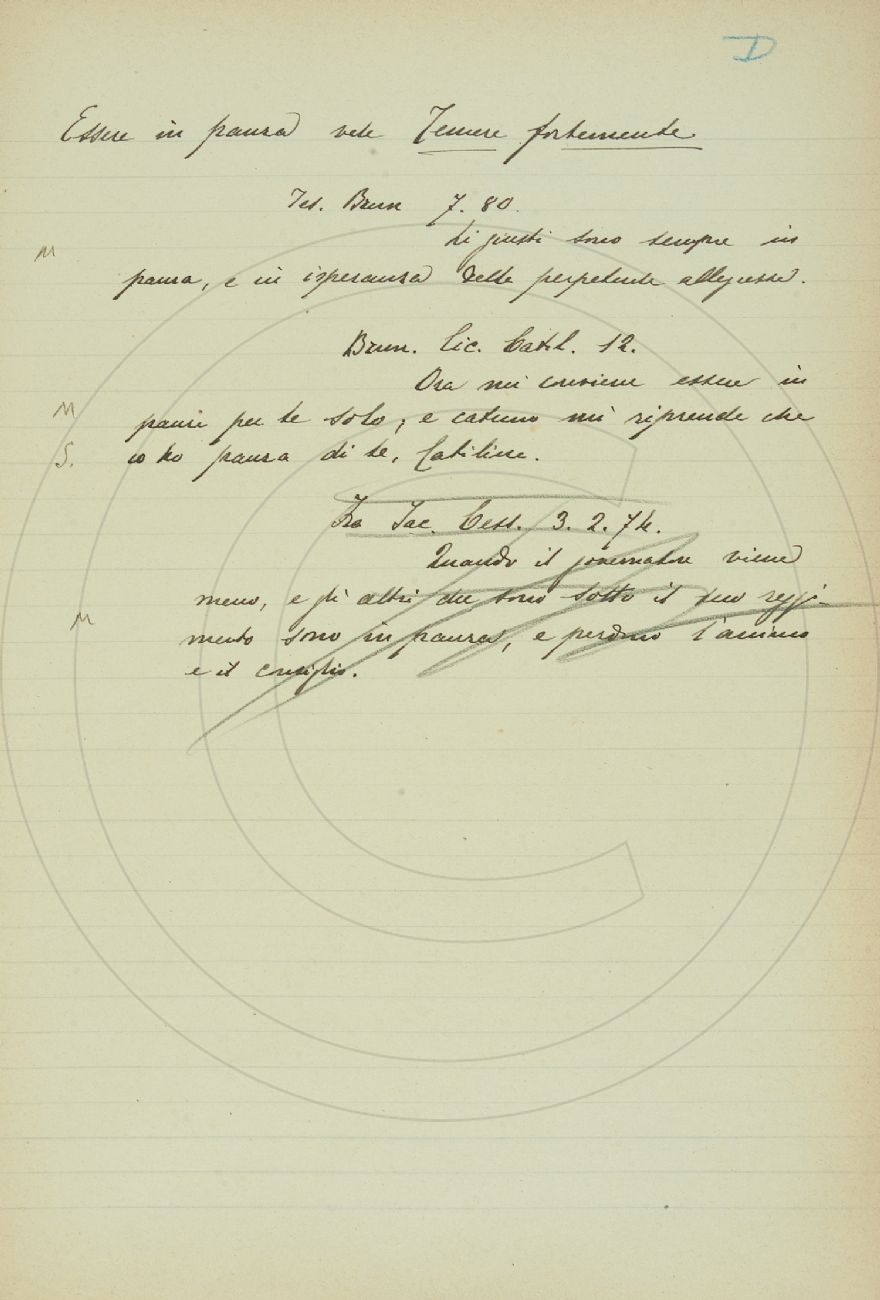 D
Essere in paura vale Temere fortemente
Tes. Brun 7. 80.
Li giusti sono sempre in
M
paura, e in isperanza delle perpetuale allegrezze.
Brun. Cic. Catil. 12.
Ora mi conviene essere in
M
paura per te solo; e catuno mi riprende che
S. io ho paura di te, Catilina.
Fra Jac. Cess. 3. 2. 74.
Quando il governatore viene
meno, e gli altri che sono sotto il suo reggi-
M
mento sono in paura, e perdono l'animo
e il consiglio.